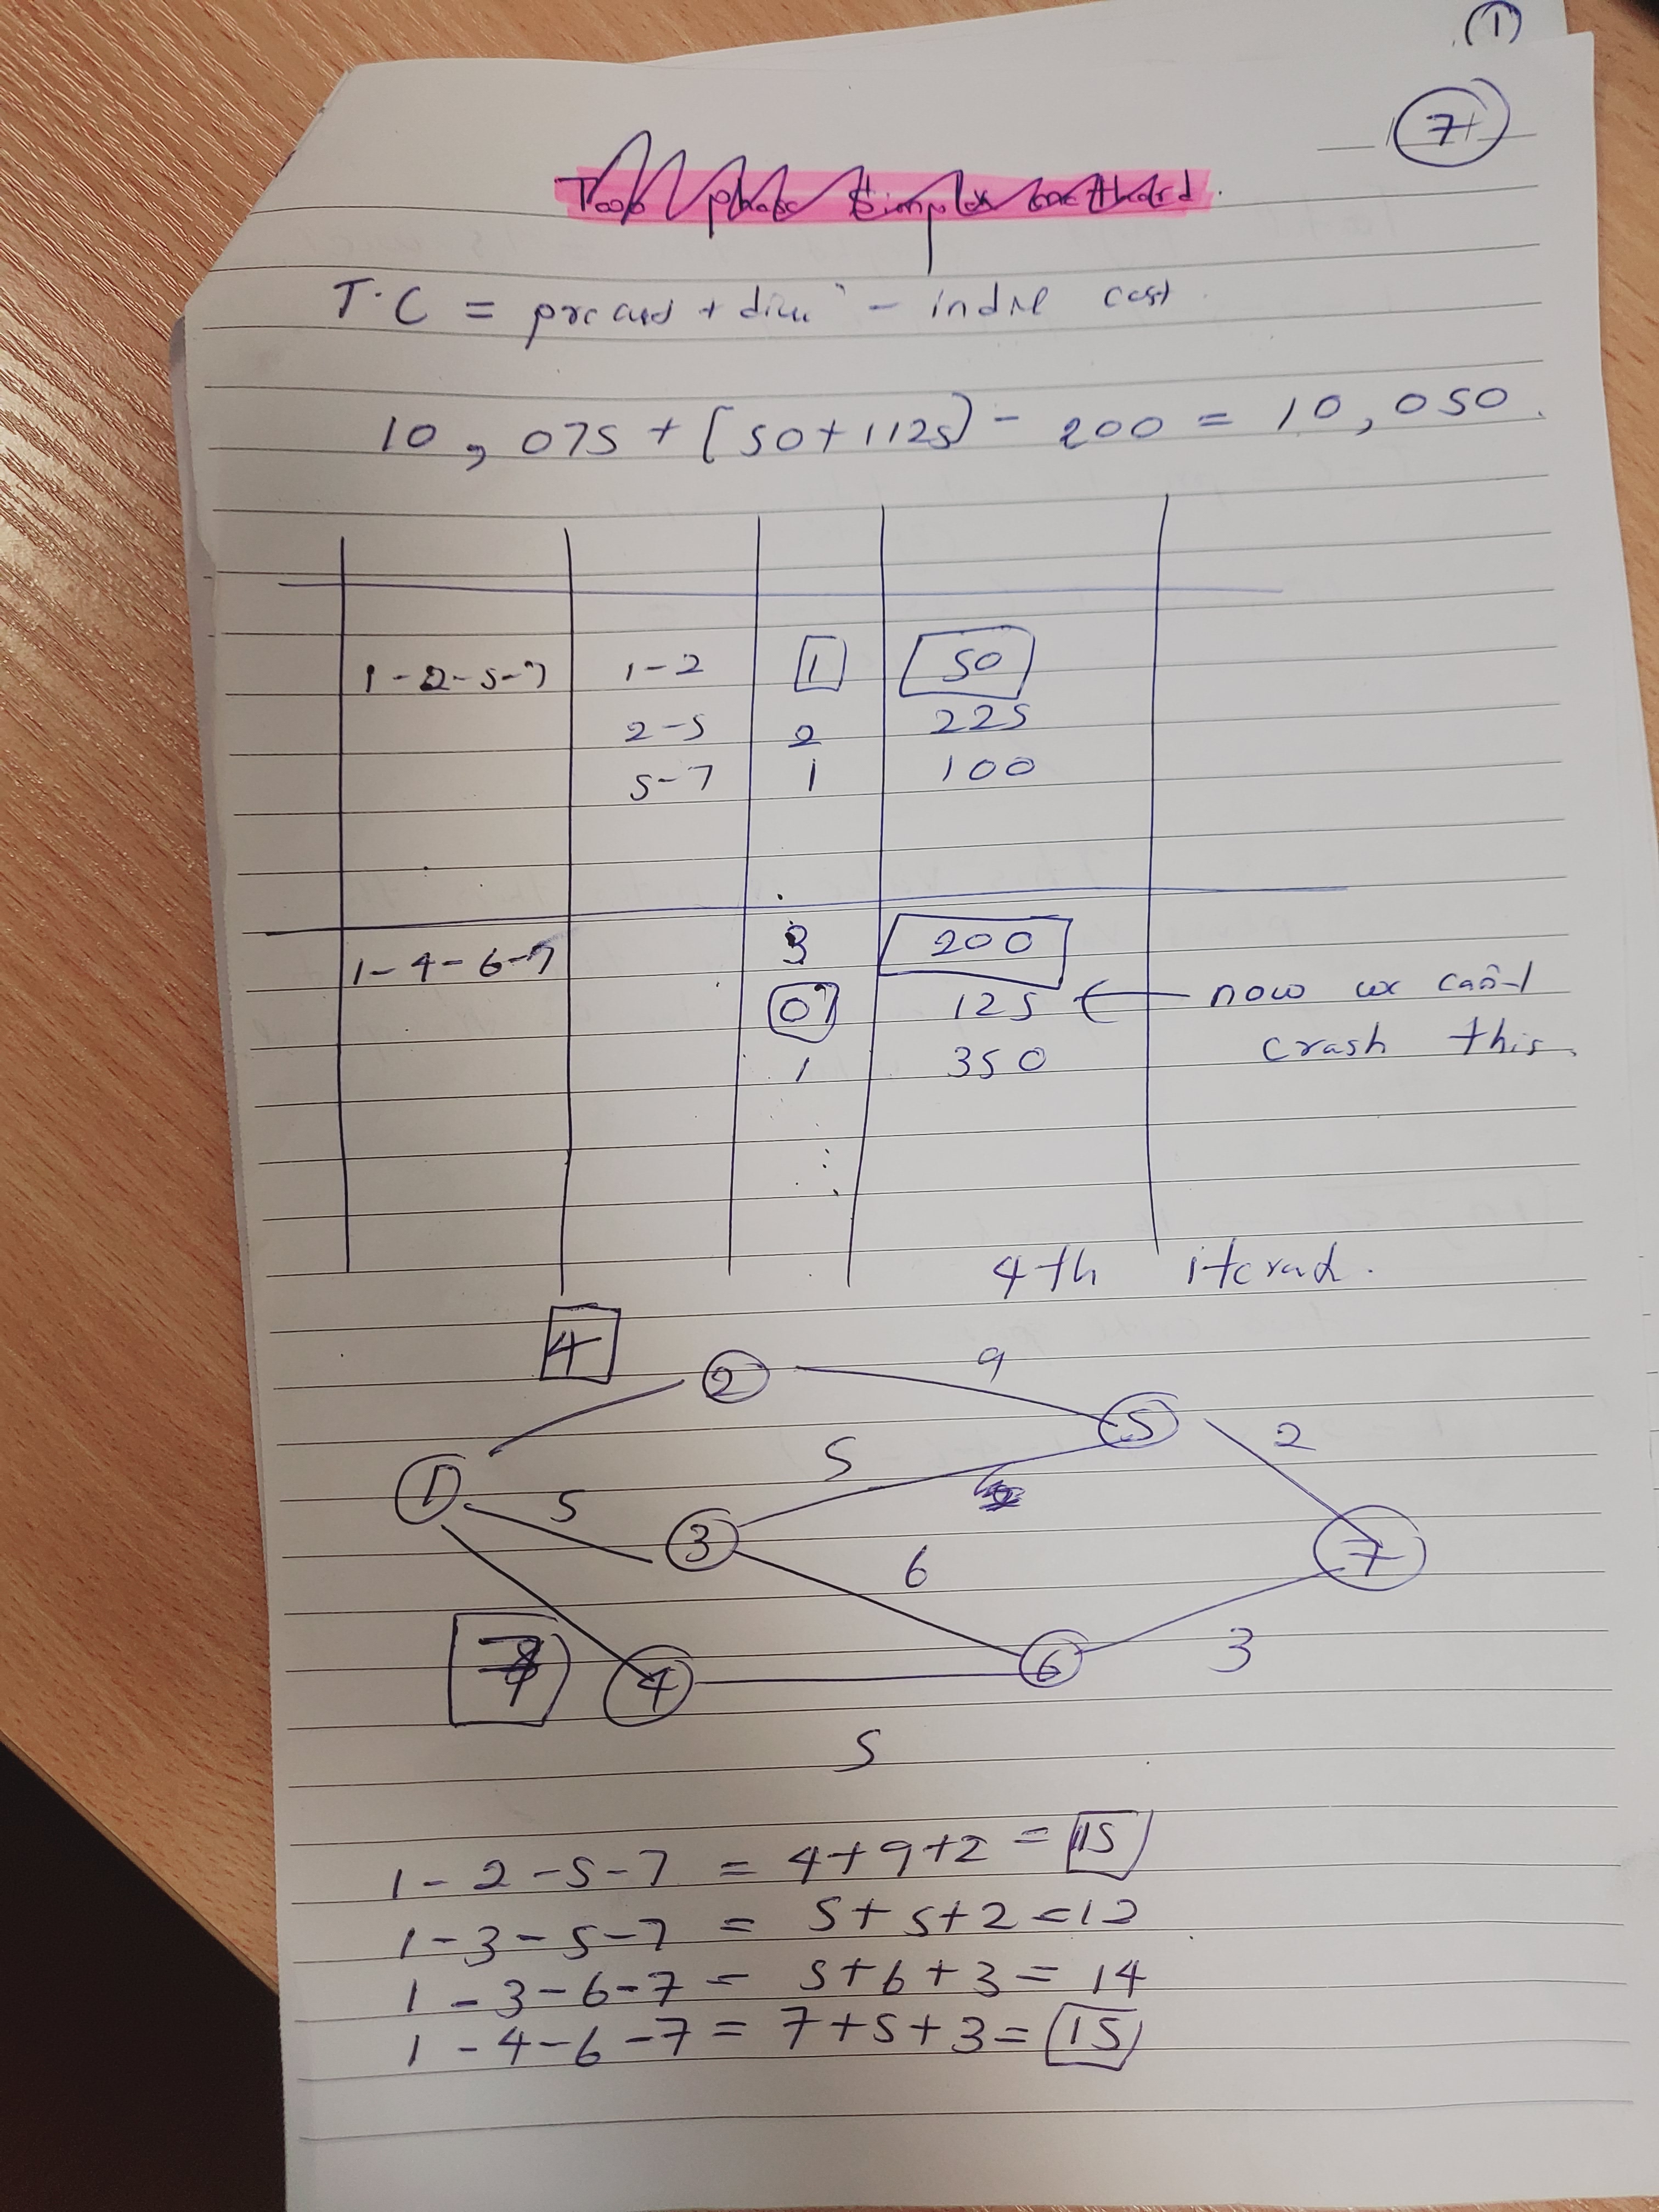 (1)
7
Two phase Simplex method.
T.C = pre cost + dire - indire cost.
10,075 + [50+1125) - 200 = 10,050.
1-2-5-7 1-2 1 50
2-5 2 225
5-7 1 100
1-4-6-7 3 200
0 125 ← now we can't
1 350 crash this.
4th iterat.
4 2 9
5 5 2
1 5
3 7
6
7 4 6 3
5
1-2-5-7 = 4+9+2 = 15
1-3-5-7 = 5+5+2=12
1-3-6-7 = 5+6+3 = 14
1-4-6-7 = 7+5+3= 15